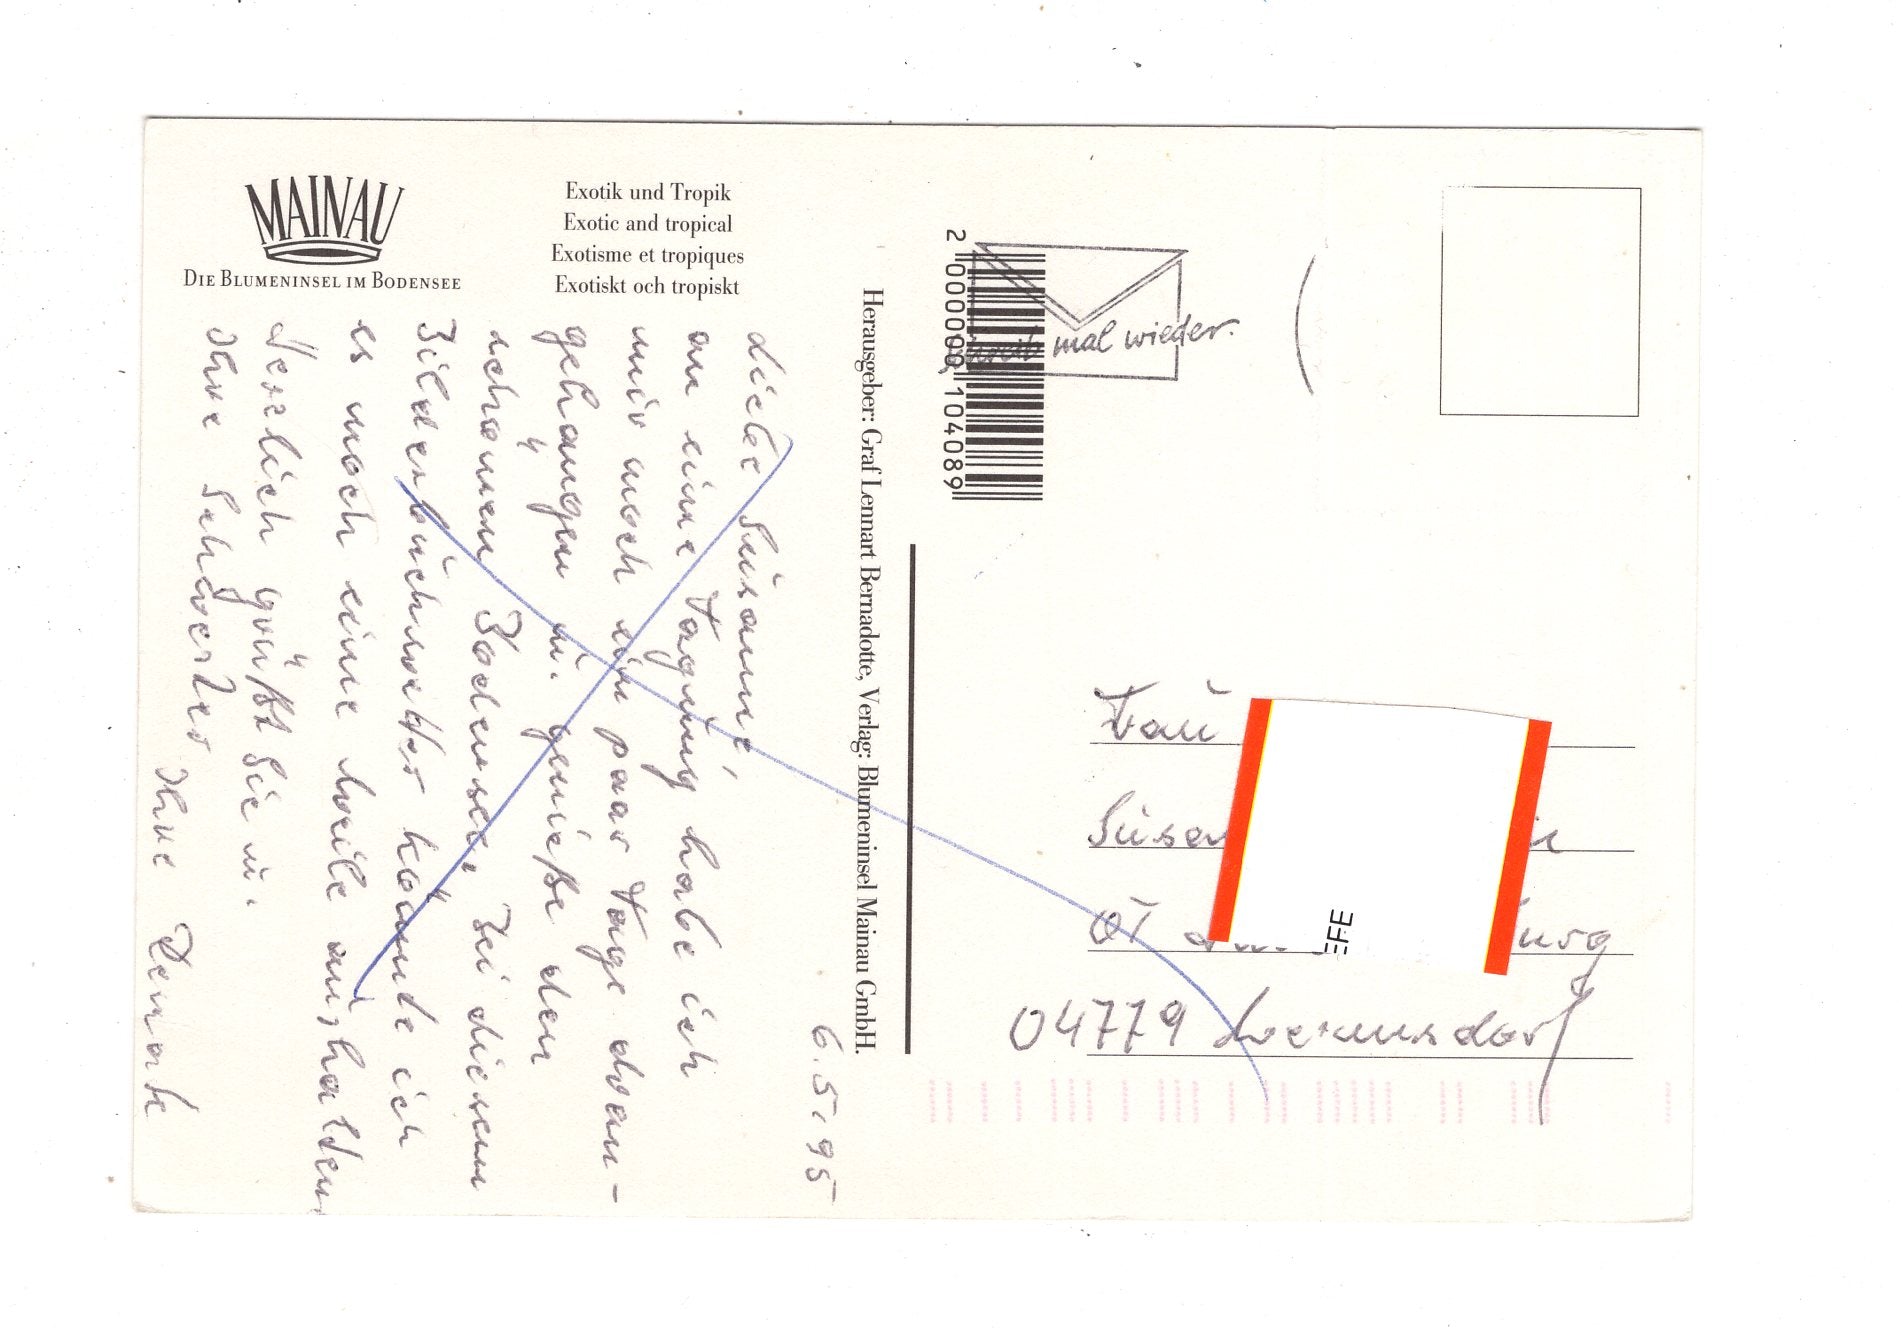 MAINAU
DIE BLUMENINSEL IM BODENSEE
Exotik und Tropik
Exotic and tropical
Exotisme et tropiques
Exotiskt och tropiskt
6.5.95
Liebe Susanne,
an eine Tagung habe ich
mir noch ein paar Tage dran-
gehangen u. genieße den
schönen Bodensee, Bei diesem
Bilderbuchwetter könnte ich
es noch eine Weile aushalten
Herzlich grüßt Sie u.
Ihre Schwester
Ihre Renate
Herausgeber: Graf Lennart Bernadotte, Verlag: Blumeninsel Mainau GmbH.
2 000000 104089
Schreib mal wieder.
Frau
Susan
OT
burg
04779 Wermsdorf
EFE